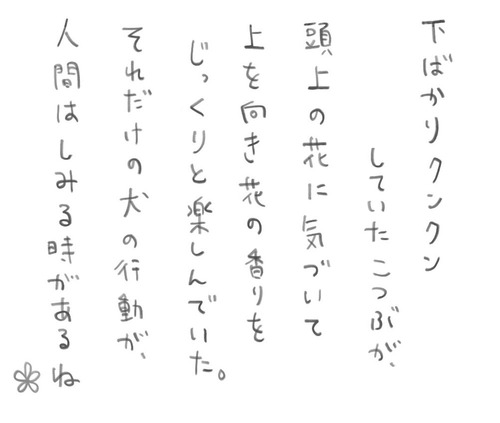 下ばかりクンクン
していたこつぶが、
頭上の花に気づいて
上を向き花の香りを
じっくりと楽しんでいた。
それだけの犬の行動が、
人間はしみる時があるね